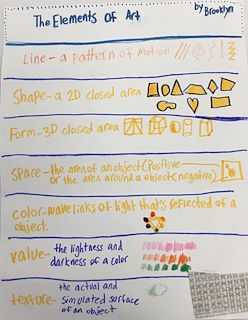 The Elements of Art
by Brooklyn
Line - a pattern of motion
Shape - a 2D closed area
Form - 3D closed area
space - the area of an object (Positive
or the area around a object (negative)
color - wave links of light that's reflected of a
object.
value - the lightness and
darkness of a color
texture - the actual and
simulated surface
of an object